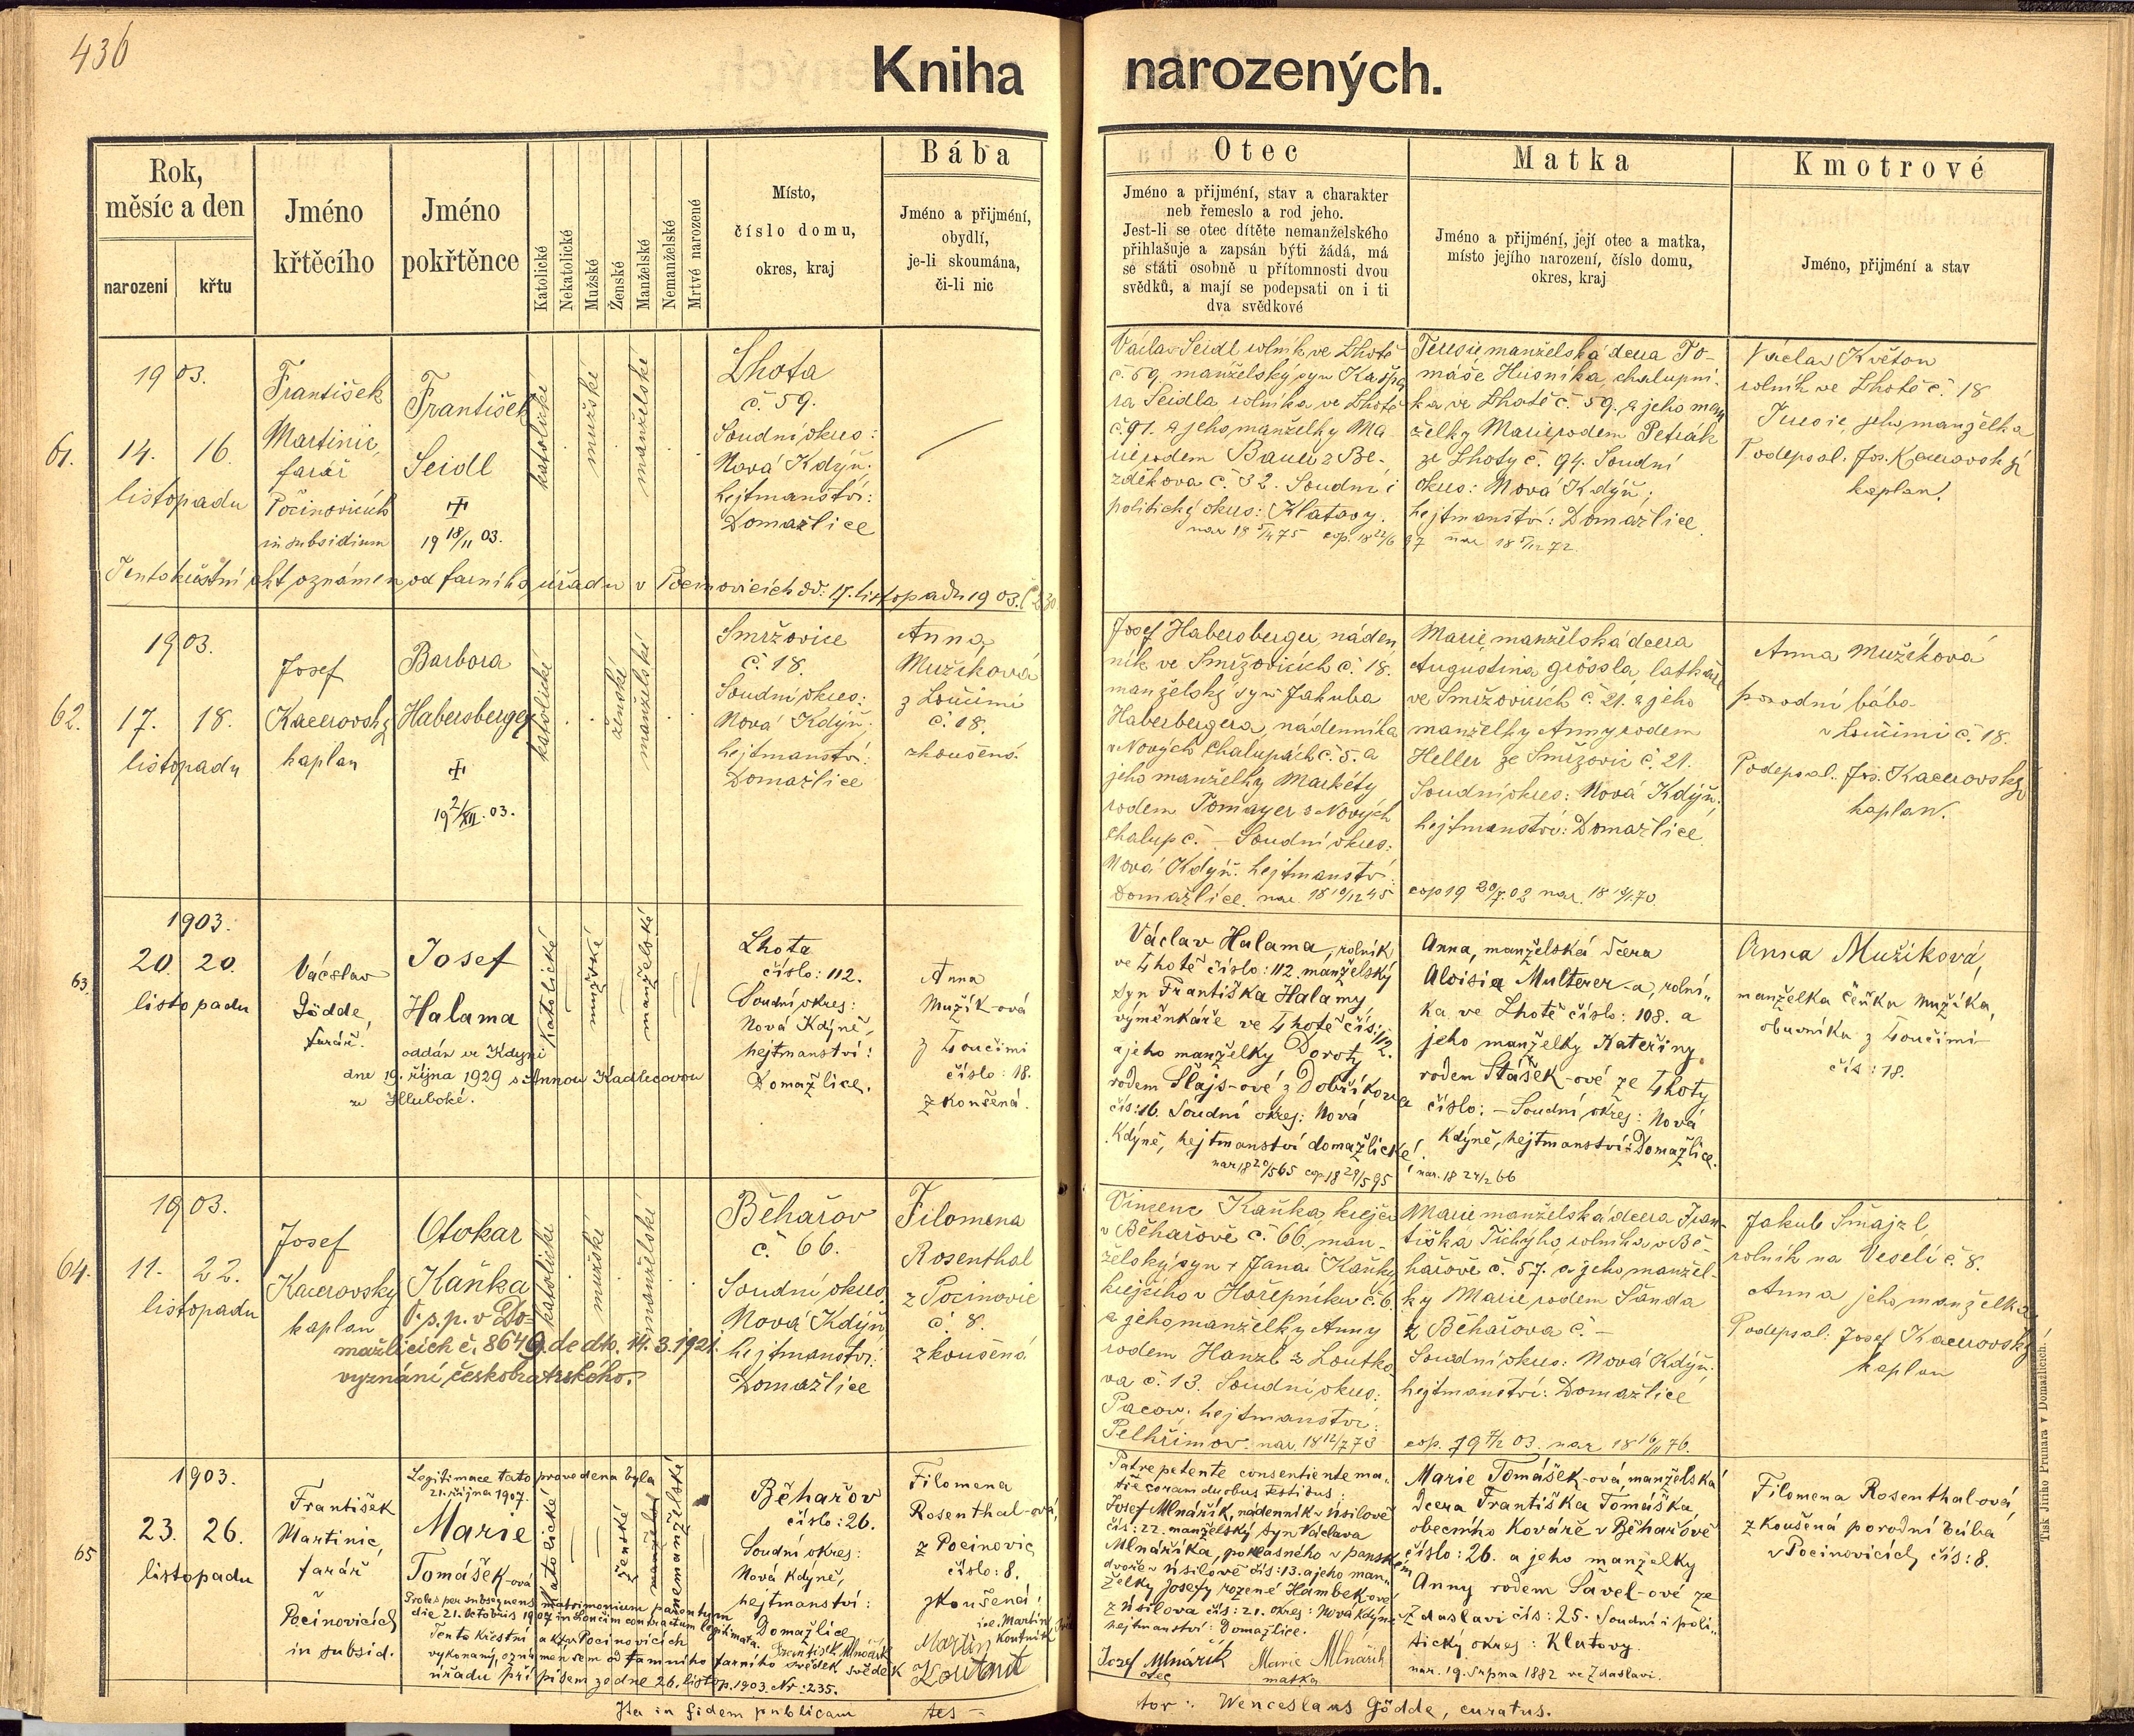 436
Kniha narozených.
Rok,
měsíc a den
narození
křtu
Jméno
křtěcího
Jméno
pokřtěnce
Katolické
Nekatolické
Mužské
Ženské
Manželské
Nemanželské
Mrtvě narozené
Místo,
číslo domu,
okres, kraj
Bába
Jméno a přijmení,
obydlí,
je-li skoumána,
či-li nic
Otec
Jméno a přijmení, stav a charakter
neb řemeslo a rod jeho.
Jest-li se otec dítěte nemanželského
přihlašuje a zapsán býti žádá, má
se státi osobně u přítomnosti dvou
svědků, a mají se podepsati on i ti
dva svědkové
Matka
Jméno a přijmení, její otec a matka,
místo jejího narození, číslo domu,
okres, kraj
Kmotrové
Jméno, přijmení a stav
61.
1903.
14. 16.
listopadu
František
Martinic,
farář
Počinovicích
in subsidium
František
Seidl
19 18/11 03.
katolické
mužské
manželské
Lhota
č. 59.
Soudní okres:
Nová Kdýň.
hejtmanství:
Domažlice
Václav Seidl rolník ve Lhotě
č. 59. manželský syn Kašpa
ra Seidla rolníka ve Lhotě
č. 91. a jeho manželky Ma
rie rodem Bauer z Be-
zděkova č. 32. Soudní i
politický okres: Klatovy.
nar 18 5/4 75 cop. 18 22/6 97
Terezie manželská dcera To-
máše Husníka, chalupní-
ka ve Lhotě č. 59. a jeho man
želky Marie rodem Petrák
ze Lhoty č. 94. Soudní
okres: Nová Kdýň;
hejtmanství: Domažlice
nar 18 5/12 72.
Václav Květon
rolník ve Lhotě č. 18
Terezie, jeho manželka
Podepsal: Jos. Kacerovský
kaplan.
Tento křestní akt oznámen od farního úřadu v Pocinovicích dd: 17. listopadu 1903. č 230.
62.
1903.
17. 18.
listopadu
Josef
Kacerovský
kaplan
Barbora
Habersberger
19 2/XII. 03.
katolické
ženské
manželské
Smržovice
č. 18.
Soudní okres:
Nová Kdýň.
hejtmanství:
Domažlice
Anna
Mužíková
z Loučimi
č. 18.
zkoušená.
Josef Habersberger, náden
ník ve Smržovicích č. 18.
manželský syn Jakuba
Habersbergera, nádenníka
v Nových Chalupách č. 5. a
jeho manželky Markéty
rodem Tomayer z Nových
Chalup č. – Soudní okres:
Nová Kdýň. hejtmanství:
Domažlice. nar. 18 10/12 45
Marie, manželská dcera
Augustina Grössla, latháře
ve Smržovicích č. 21. a jeho
manželky Anny rodem
Heller ze Smržovic č. 21.
Soudní okres: Nová Kdýň;
hejtmanství: Domažlice.
cop 19 20/7. 02 nar. 18 9/1. 70.
Anna Mužíková
porodní bába
v Loučimi č. 18.
Podepsal: Jos. Kacerovský
kaplan.
63.
1903.
20. 20.
listopadu
Václav
Gödde,
farář.
Josef
Halama
oddán ve Kdyni
dne 19. října 1929 s Annou Kadlecovou
ze Hluboké.
Katolické
mužské
manželské
Lhota
číslo: 112.
Soudní okres:
Nová Kdýně,
hejtmanství:
Domažlice.
Anna
Mužík-ová
z Loučimi
číslo: 18.
zkoušená.
Václav Halama, rolník
ve Lhotě číslo: 112. manželský
syn Františka Halamy,
výměnkáře ve Lhotě čís: 112.
a jeho manželky Doroty
rodem Šlajs-ové z Dobříkova
čís: 16. Soudní okres: Nová
Kdýně, hejtmanství domažlické.
nar 18 20/5 65 cop 18 28/5 95
Anna, manželská dcera
Aloisia Multerer-a, rolní-
ka ve Lhotě číslo: 108. a
jeho manželky Kateřiny
rodem Stášek-ové ze Lhoty
číslo: – Soudní okres: Nová
Kdýně, hejtmanství: Domažlice.
nar. 18 24/2 66
Anna Mužíková,
manželka Čeňka Mužíka,
obuvníka z Loučimi
čís: 18.
64.
1903.
11. 22.
listopadu
Josef
Kacerovský
kaplan
Otokar
Kaňka
O. s. p. v Do-
mažlicích č. 8649 de dto. 14. 3. 1921.
vyznání českobratrského.
katolické
mužské
manželské
Běhařov
č. 66.
Soudní okres
Nová Kdýň
hejtmanství:
Domažlice
Filomena
Rosenthal
z Pocinovic
č. 8.
zkoušená
Vincenc Kaňka, krejčí
v Běhařově č. 66. man-
želský syn + Jana Kaňky
krejčího v Hořepníku č. 6.
a jeho manželky Anny
rodem Hanzl z Loutko
va č. 13. Soudní okres:
Pacov. hejtmanství:
Pelhřimov. nar. 18 12/7 73
Marie manželská dcera Fran-
tiška Tichýho, rolníka v Bě-
hařově č. 57. a jeho manžel-
ky Marie rodem Šanda
z Běhařova č. –
Soudní okres: Nová Kdýň;
hejtmanství: Domažlice
cop. 19 4/2 03. nar 18 16/11 76.
Jakub Smajzl
rolník na Veselí č. 8.
Anna jeho manželka
Podepsal: Josef Kacerovský
kaplan
65
1903.
23. 26.
listopadu
František
Martinic,
farář
v
Pocinovicích
in subsid.
Legitimace tato provedena byla
21. října 1907.
Marie
Tomášek-ová
Proles per subsequens matrimonium parentum
die 21. Octobris 1907 in Loučim contractum legitimata.
Tento křestní akt v Pocinovicích
vykonaný, oznámen sem od tamního farního
úřadu přípisem ze dne 26. listop. 1903. Nr: 235.
Katolické
ženské
manželské
nemanželské
Běhařov
číslo: 26.
Soudní okres:
Nová Kdýně,
hejtmanství:
Domažlice
František Mlnařík
svědek
Filomena
Rosenthal-ová,
z Pocinovic
číslo: 8.
zkoušená.
i.e. Martin
Koutník
svědek
Martin
Koutnik
Patre petente consentiente ma-
tre coram duobus testibus:
Josef Mlnářík, nádenník v Úsilově
čís: 22. manželský syn Václava
Mlnaříka, poklasného v panském
dvoře v Úsilově čís: 13. a jeho man-
želky Josefy rozené Hambek-ové
z Úsilova čís: 21. okres: Nová Kdýně
hejtmanství: Domažlice.
Josef Mlnařik
otec
Marie Mlnařik
matka
Marie Tomášek-ová, manželská
dcera Františka Tomáška
obecního kováře v Běhařově
číslo: 26. a jeho manželky
Anny rodem Šavel-ové ze
Zdaslavi čís: 25. Soudní i poli-
tický okres: Klatovy.
nar. 19. srpna 1882 ve Zdaslavi.
Filomena Rosenthal-ová,
zkoušená porodní bába
v Pocinovicích čís: 8.
Ita in fidem publicam tes-
tor: Wenceslaus Gödde, curatus.
Tisk Jiřího Prunara v Domažlicích.